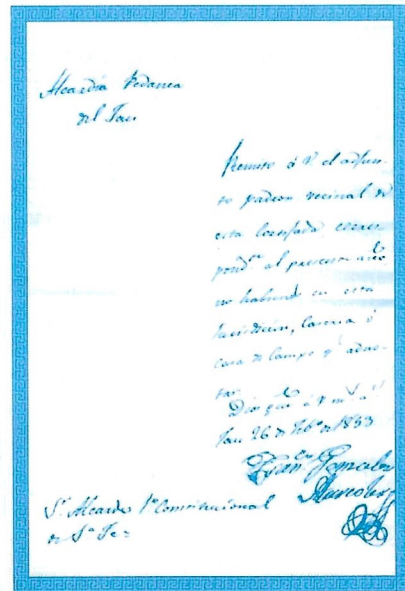 Alcaldia Pedanea
del Jau
Remito á V. el adjun-
to padron vecinal de
esta Cortijada corres-
pond.te al presente año
no habiend en esta
Jurisdicion, Caseria ó
casa de campo q.e
Dios gu.e á V. m.s a.s
Jau 26 de Feb.o de 1853
Fran.co Gonzalez
S.r Alcalde 1.o Constitucional
de S.ta Fe